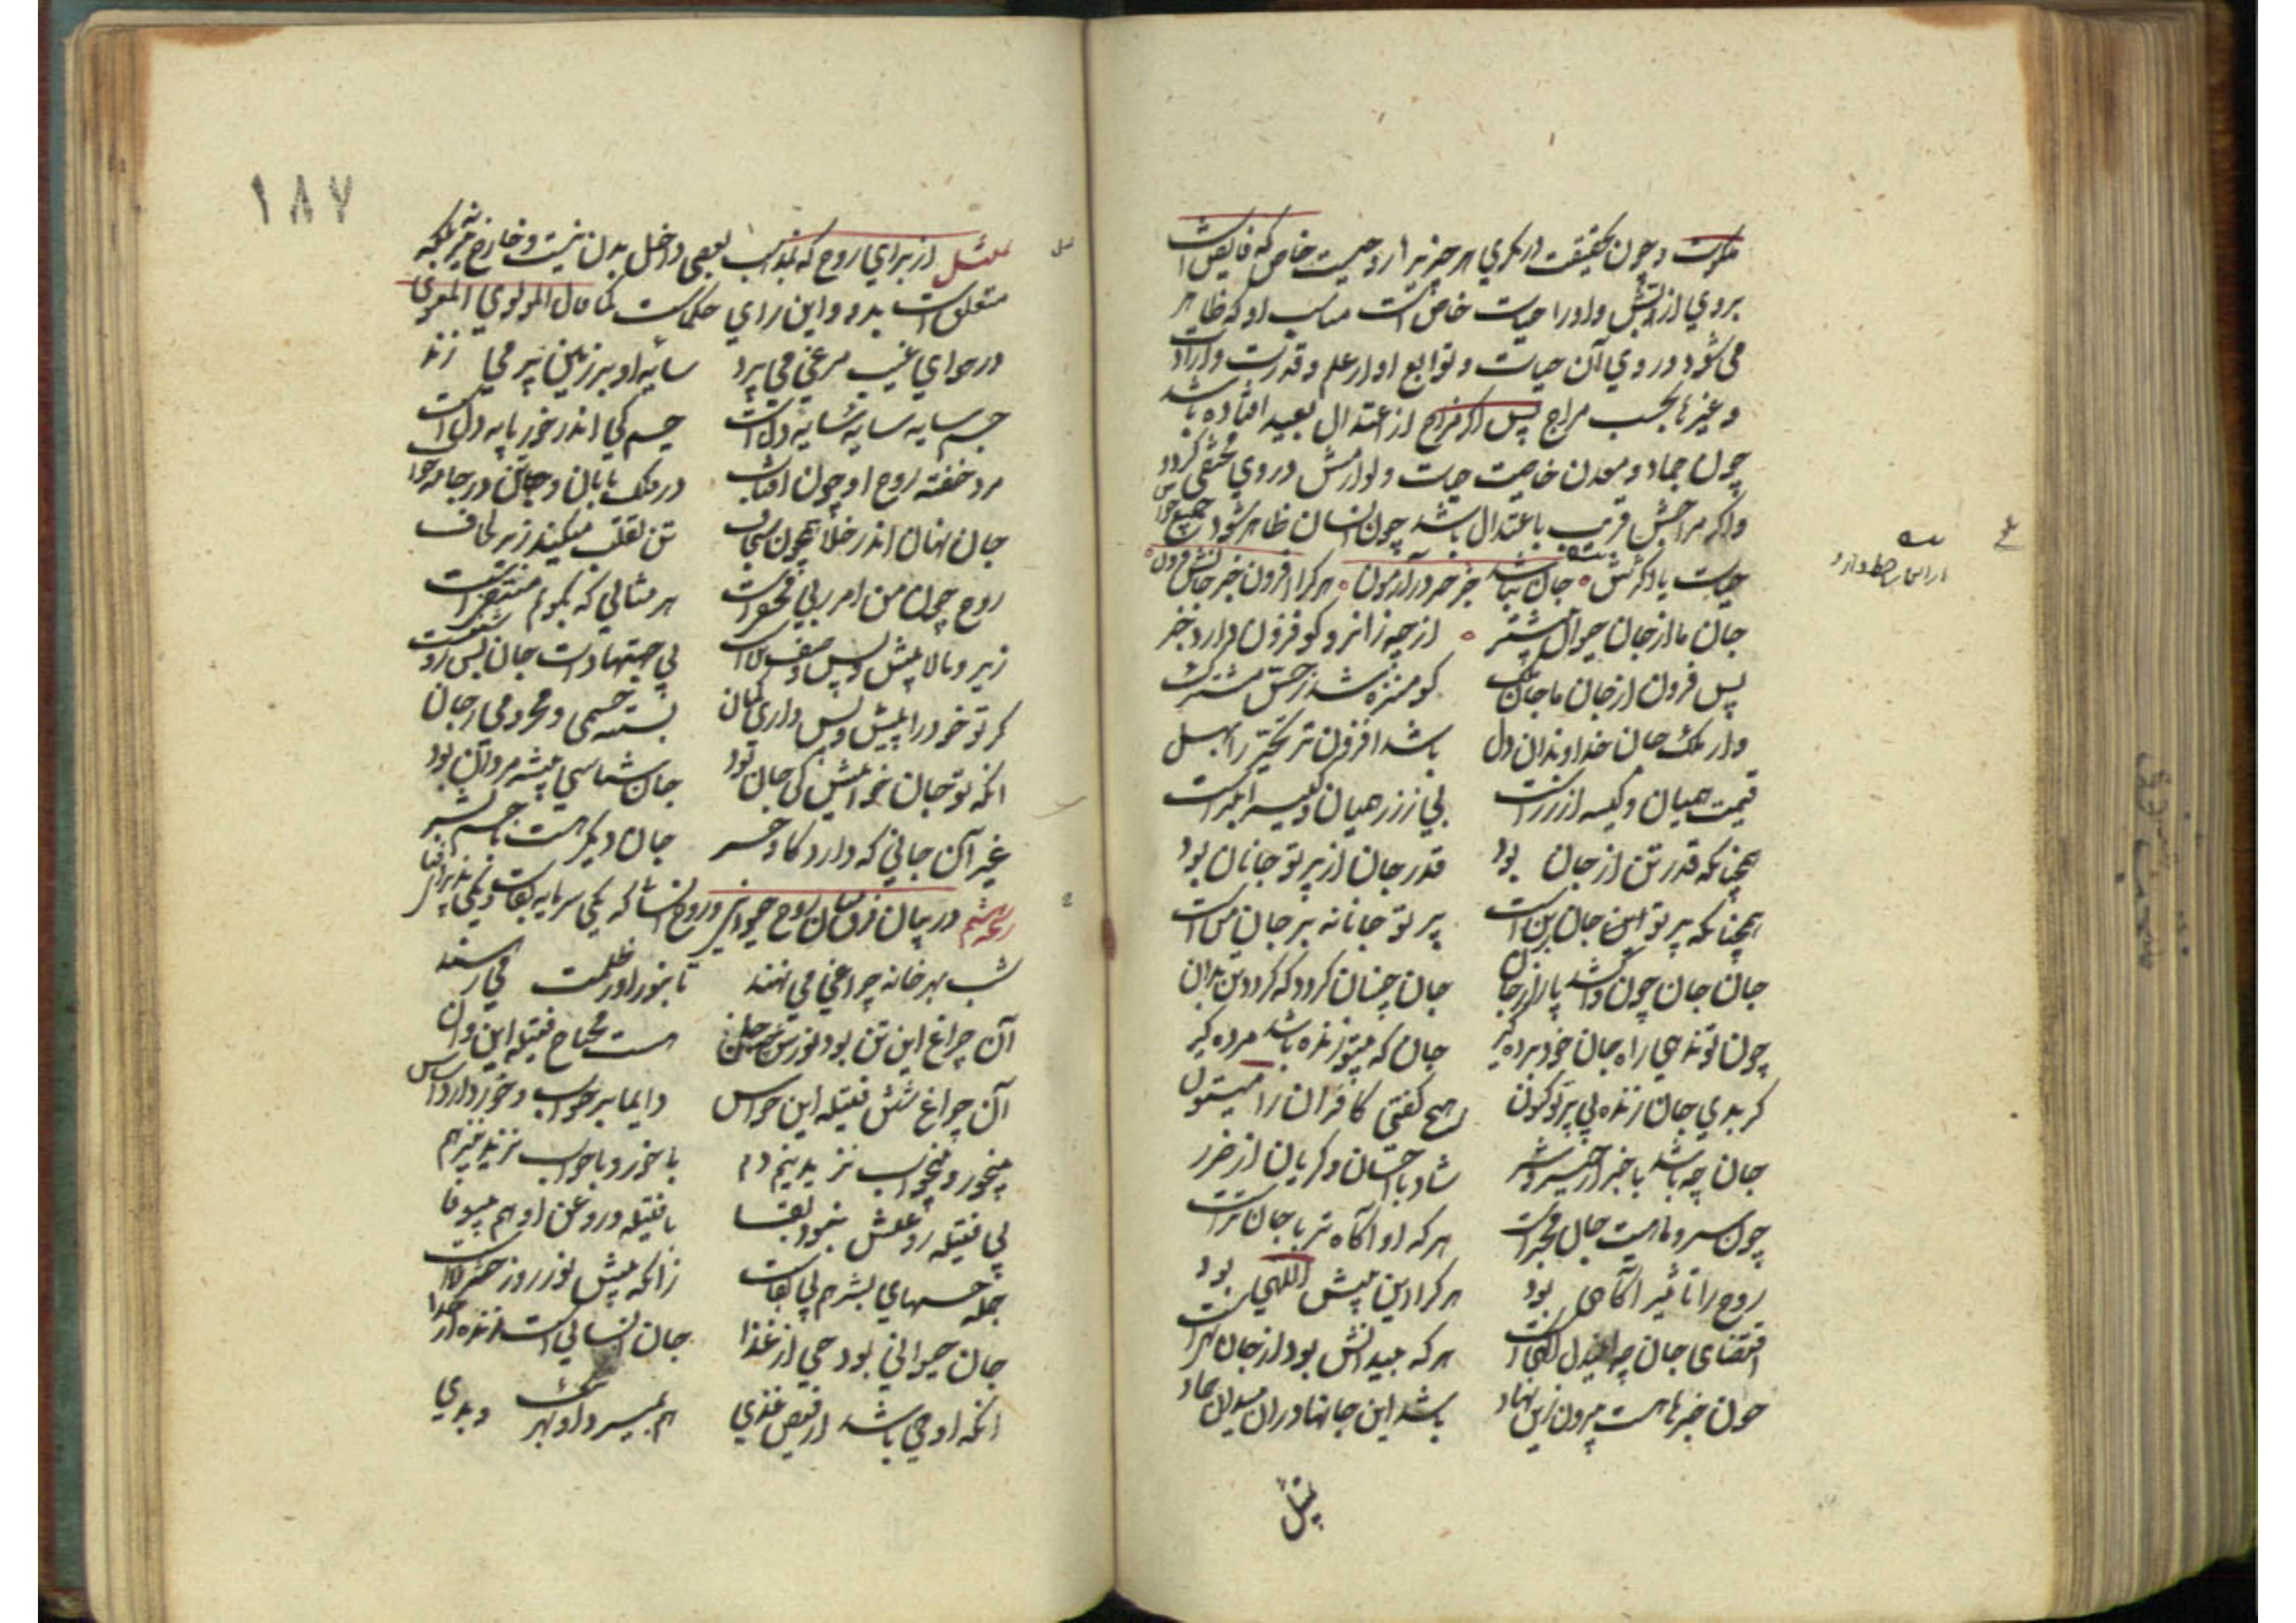 ملکوت و چون بحقیقت در نگری هر چیز را روحیست خاص که فایض است
بروی از ربش و او را حیات خاص است مناسب او که ظاهر
می شود در وی آن حیات و توابع او از علم و قدرت و ارادت
و غیرها بحسب مزاج پس اگر مزاج از اعتدال بعید افتاده باشد
چون جماد و معدن خاصیت حیات و لوازمش در وی مختفی گردد
واگر مزاجش قریب باعتدال باشد چون انسان ظاهر شود جمیع خواص
حیات با دکرش جان نباشد جز خبر در آزمون هر کرا افزون خبر جانش فزون
جان ما از جان حیوان بیشتر از چه زان رو کو فزون دارد خبر
پس فزون از جان ما جان ملک کو منزه شد ز حس مشترک
وز ملک جان خداوندان دل باشد افزون تر تحیر را بهل
قیمت همیان و کیسه از زرست بی ز زر همیان و کیسه ابترست
همچنانکه قدر تن از جان بود قدر جان از پرتو جانان بود
همچنانکه پرتو این جان بر تن است پرتو جانانه بر جان من است
جان جان چون واکشد پا را ز جان جان چنان گردد که گردد تن بدان
چون تو ندهی راه جان خود برده گیر جان که بی تو زنده باشد مرده گیر
گر بدی جان زنده بی پرتو کنون هیچ گفتی کافران را میتون
جان چه باشد با خبر از خیر و شر شاد با احسان و گریان از ضرر
چون سر و ماهیت جان مخبرست هر که او آگاه تر با جان ترست
روح را تاثیر آگاهی بود هر کرا این بیش اللهی بود
اقتضای جان چو ای دل آگهی است هر که
چون خبرها هست بیرون زین نهاد باشد این جانها در آن میدان جماد
تمثیل
۱۸۷
تمثیل از برای روح که بمذهب بعضی داخل بدن نیست و خارج نیز نه بلکه
متعلق است بدو و این رای حکماست کما قال المولوی المعنوی
در هوای غیب مرغی می پرد سایه او بر زمین پر می زند
جسم سایه سایه سایه دل است جسم کی اندر خور پایه دل است
مرد خفته روح او چون آفتاب در فلک تابان و جان در جامه خواب
جان نهان اندر خلا همچون سجاف تن تقلب میکند زیر لحاف
روح چون من امر ربی مختفیست هر مثالی که بگویم منتفیست
زیر و بالا پیش و پس وصف تن است بی جهتها ذات جان روشن است
گر تو خود را پیش و پس داری گمان بسته جسمی و محرومی ز جان
جان شناسی پیشه مردان بود
غیر آن جانی که دارد گاو و خر جان دیگر هست با جسم بشر
رشحه ششم در بیان فرق میان روح حیوانی و روح انسانی که یکی سرمایه بقاست و یکی پذیرای فنا
شب بهر خانه چراغی می نهند تا بنور او ز ظلمت می رهند
آن چراغ این تن بود نورش چو جان هست محتاج فتیله این و آن
آن چراغ شش فتیله این حواس دایما بر خواب و خور دارد اساس
بی خور و بی خواب نزید نیم دم با خور و با خواب نزید نیز هم
بی فتیله روغنش نبود بقا با فتیله و روغن او هم بی وفا
جمله حسهای بشر هم بی بقاست زانکه پیش نور روز حشر لاست
جان حیوانی بود حی از غذا جان انسانی است زنده از خدا